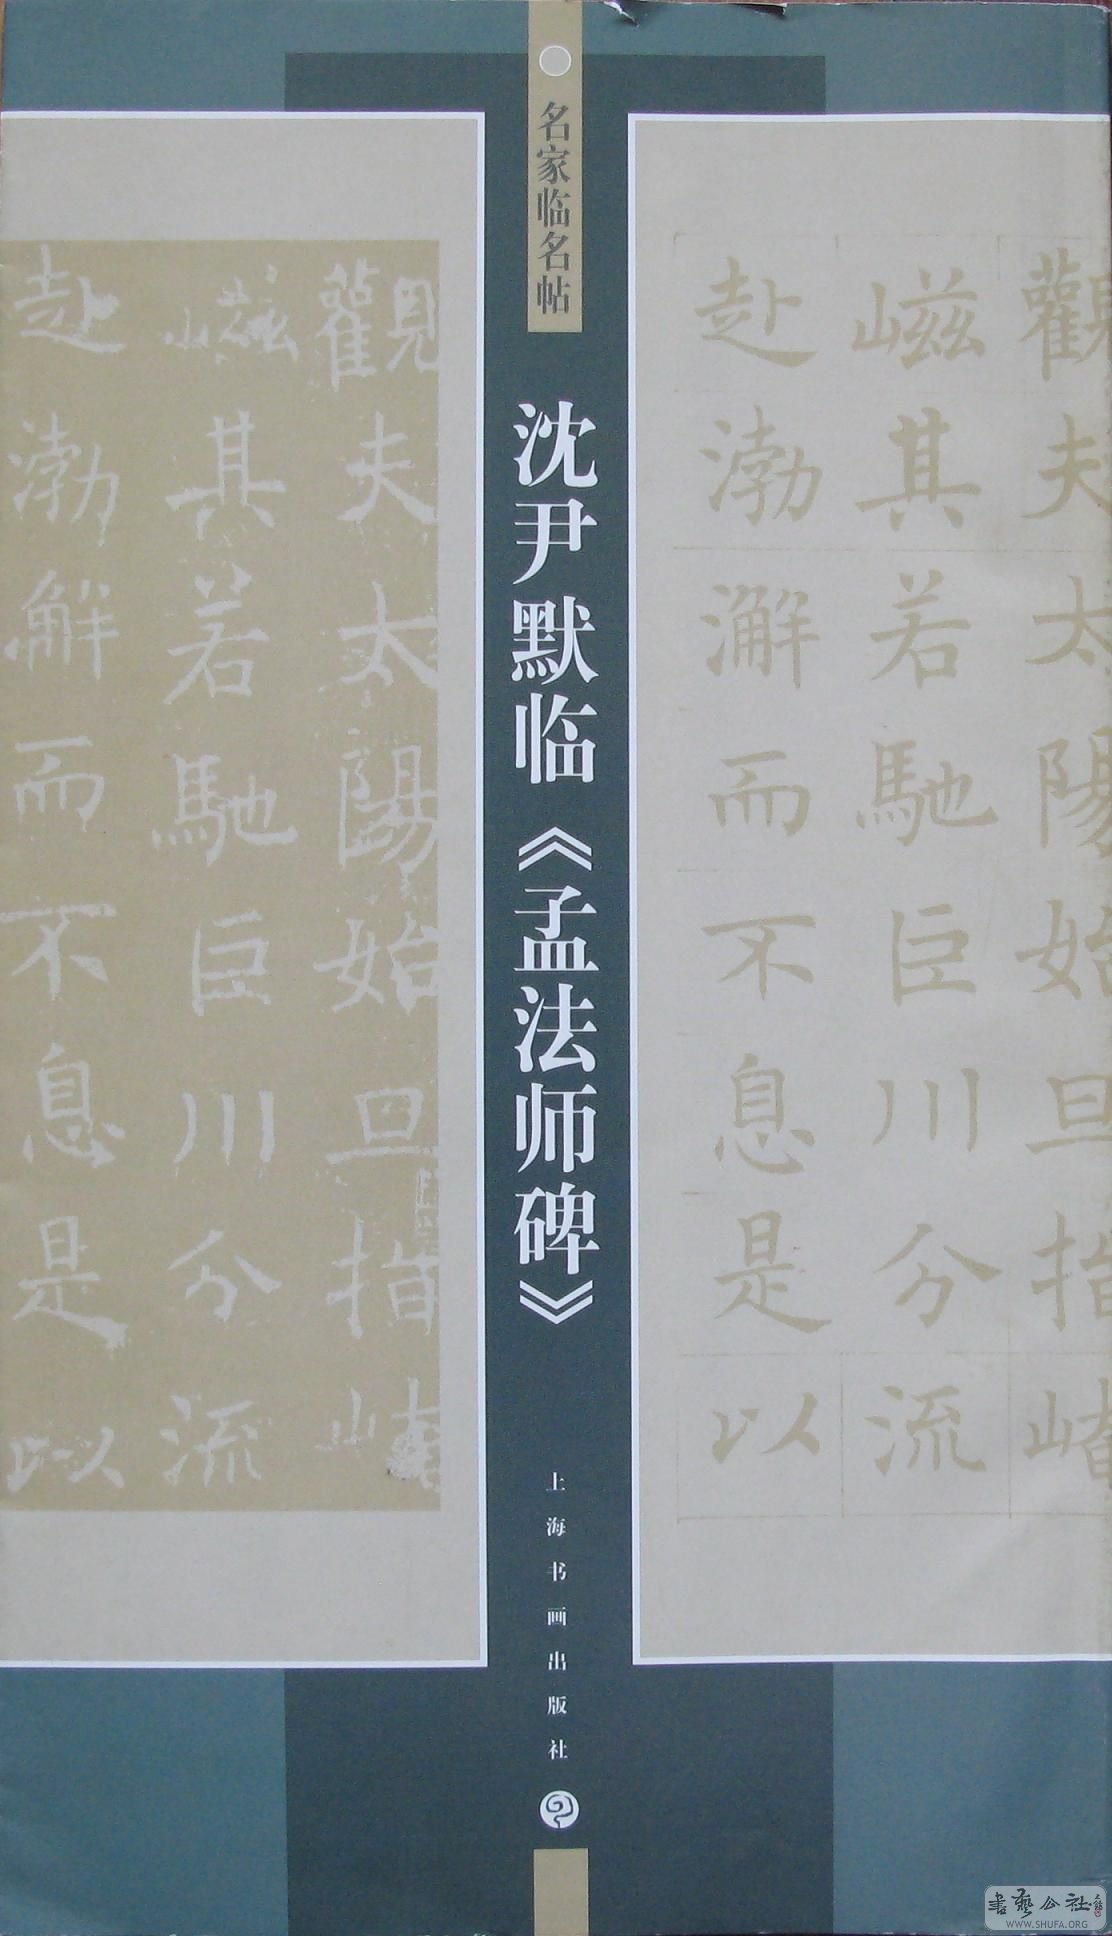 名家临名帖
沈尹默临《孟法师碑》
上海书画出版社
觀夫太陽始旦指崦
嵫其若馳巨川分流
赴渤澥而不息是以
觀夫太陽始旦指崦
嵫其若馳巨川分流
赴渤澥而不息是以
書藝公社
WWW.SHUFA.ORG